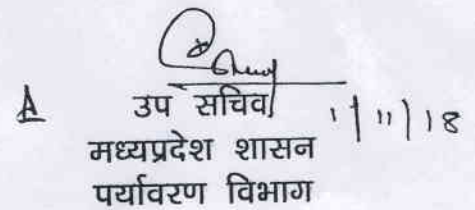 उप सचिव 1/11/18
मध्यप्रदेश शासन
पर्यावरण विभाग